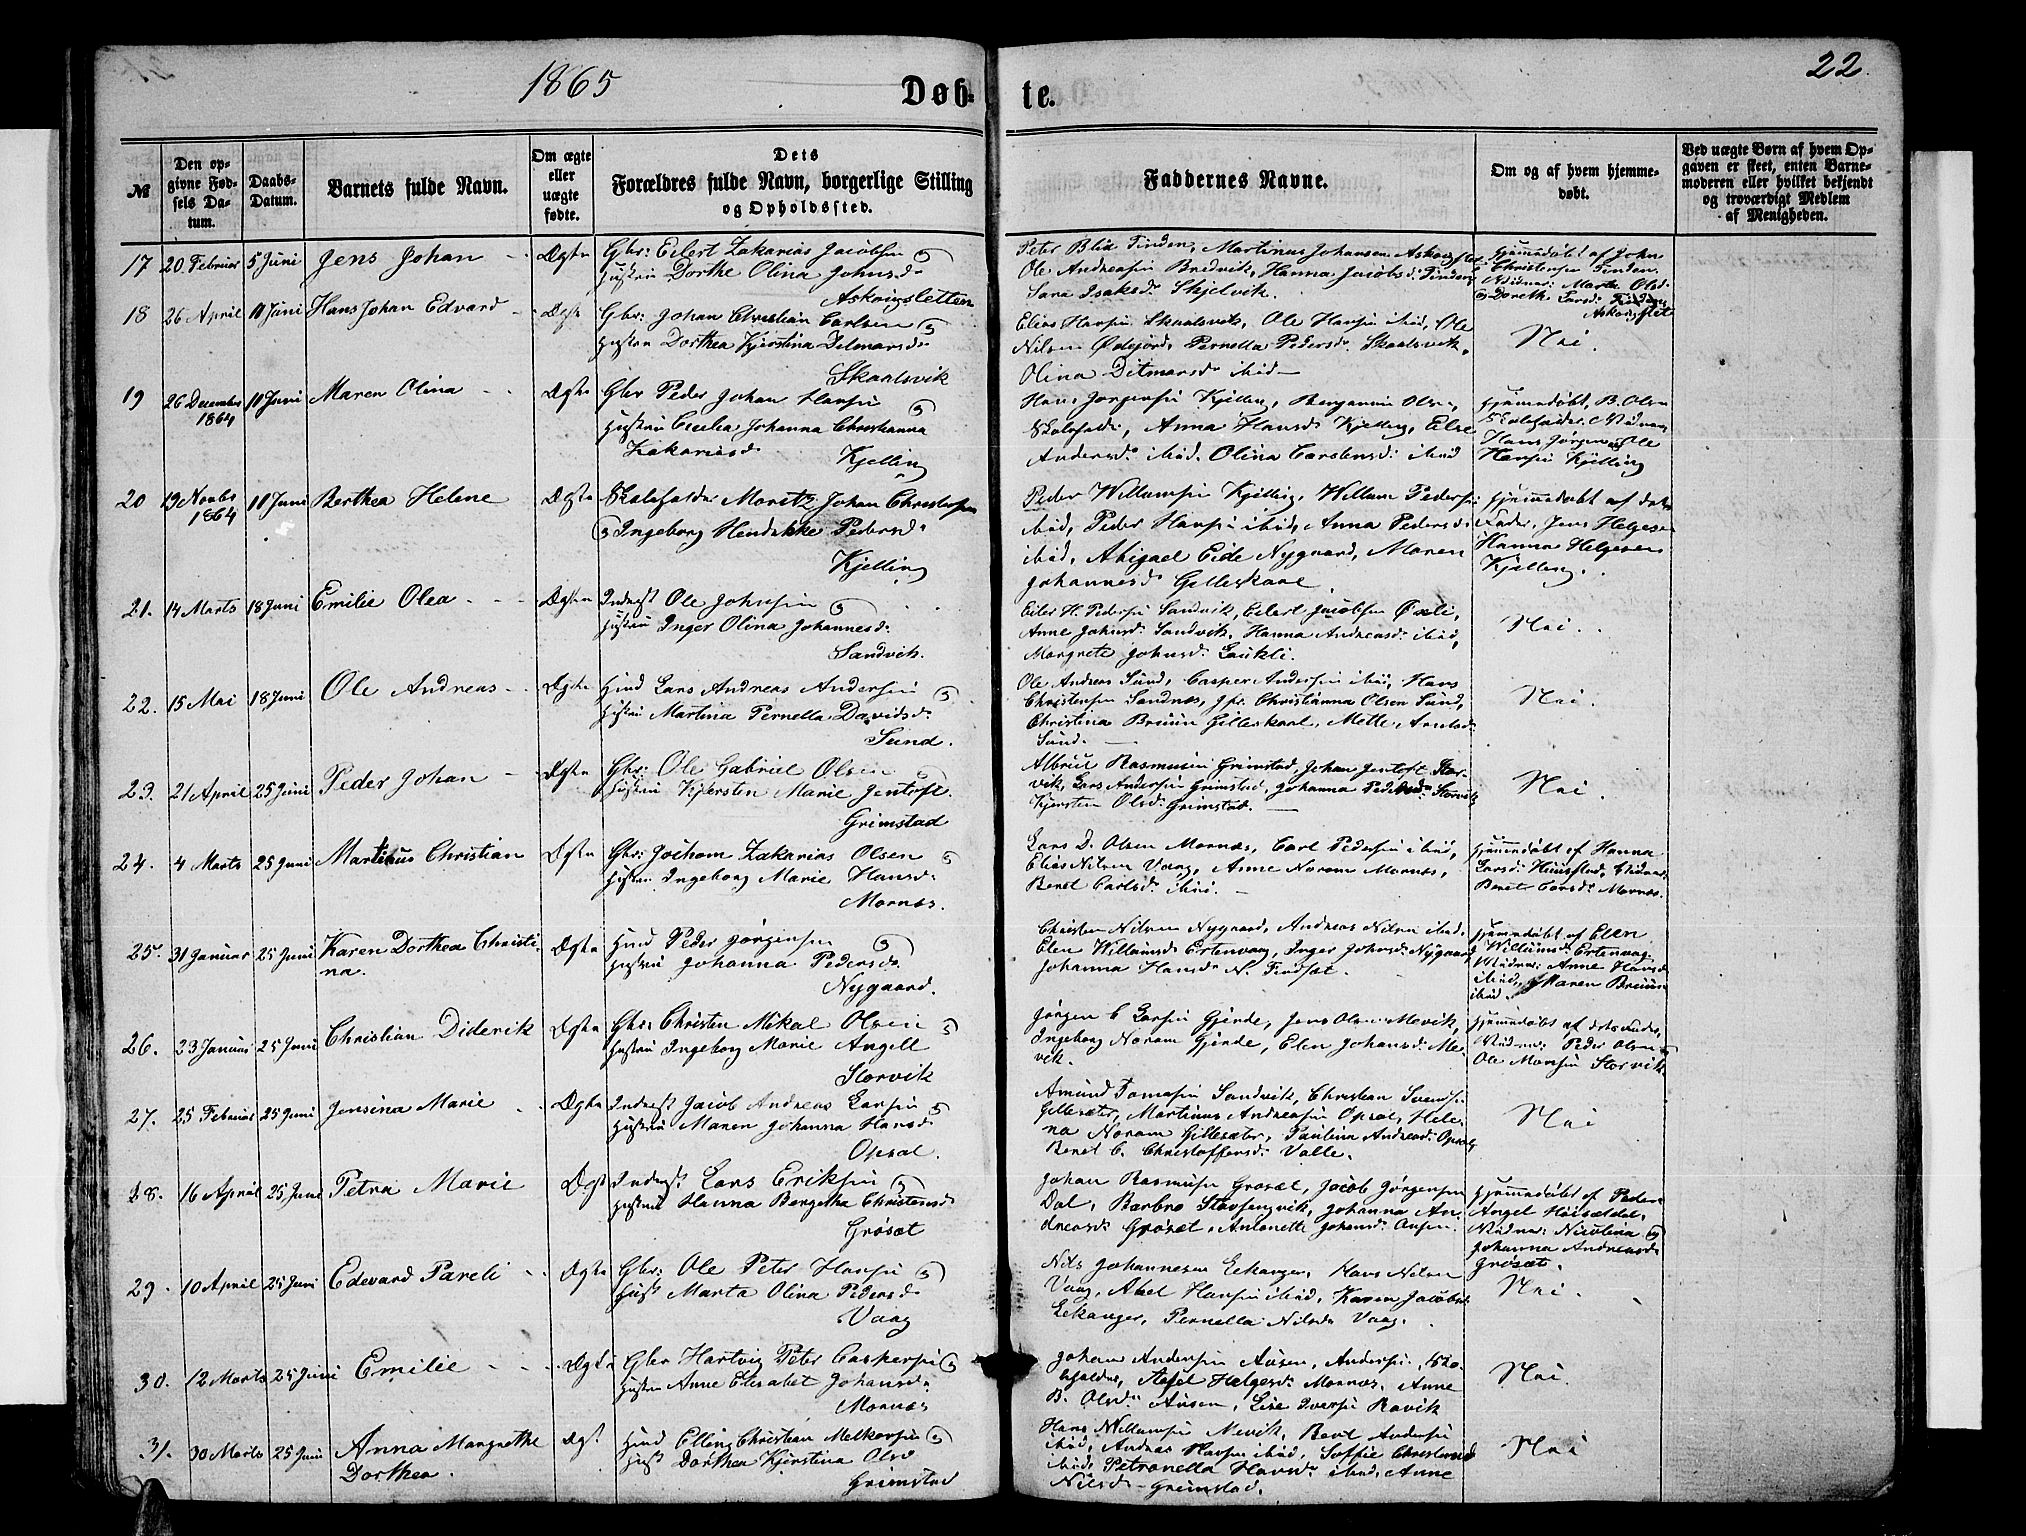 1865
Døb-
te.
22.
№
Den opgivne Fødsels Datum.
Daabs-Datum.
Barnets fulde Navn.
Om ægte eller uægte fødte.
Dets Forældres fulde Navn, borgerlige Stilling og Opholdssted.
Faddernes Navne.
Om og af hvem hjemmedøbt.
Ved uægte Børn af hvem Opgaven er skeet, enten Barnemoderen eller hvilket bekjendt og troværdigt Medlem af Menigheden.
17 20. Februar 5 Juni Jens Johan Ægte Gbr: Eilert Zakarias Jacobsen
Hustru Dorthe Olina Johnsd:
Askougsletten
Peter Blix Tinden, Martinus Johansen
Ole Andreasen Bredvik, Hanna Jacobsd: Tinden
Sara Isaksd: Skjelvik.
Hjemmedøbt af John
Christensen Tinden.
18 26 April 11 Juni Hans Johan Edvard Ægte Gbr: Johan Christian Carlsen
Hustru Dorthea Kjerstina Ditmarsd:
Skaalsvik
Elias Hansen Skaalsvik, Ole Hansen ibid, Ole
Nilsen Ødejord, Pernella Pedersd: Skaalsvik,
Olina Ditmarsd: ibid
Nei.
19 26 December 1864 11 Juni Maren Olina Ægte Gbr Peder Johan Hansen
Hustru Cecilia Johanna Christianna
Zakariasd
Kjelling
Hans Jørgensen Kjelling, Benjamin Olsen,
Anna Hansd: Kjelling, Else
Andersd: ibid. Olina Carstensd: ibid
Hjemmedøbt, B. Olsen
Hans Jørgensen, Ole
Hansen Kjelling
20 19 Novbr 1864 11 Juni Berthea Helene Ægte Skoleholder Moritz Johan Christophersen
Ingeborg Hendrikke Pedersd:
Kjelling
Peder Willumsen Kjelling, Willum Pedersen
ibid, Peder Hansen ibid, Anna Pedersd:
ibid, Abigael Eide Nygaard, Maren
Johannesd: Gilleskaal
Hjemmedøbt af dets
Fader, Jens Helgesen
Hanna Helgesen
Kjelling.
21. 14 Marts 18 Juni Emilie Olea Ægte Inderst Ole Johnsen
Hustru Inger Olina Johannesd:
Sandvik.
Eiler H. Pedersen Sandvik, Eilert Jacobsen
Anne Johnsd: Sandvik, Hanna Andreasd: ibid,
Margrete Johnsd: Laukli.
Nei.
22. 15 Mai 18 Juni Ole Andreas Ægte Hmd Lars Andreas Andersen
Hustru Martina Pernella Davidsd:
Sund.
Ole Andreas Sund, Casper Andersen ibid, Hans
Christensen Sandnæs, Christianna Olsen Sund,
Christina Bruun Gilleskaal, Mette
Sund.
Nei.
23. 21 April 25 Juni Peder Johan Ægte Gbr: Ole Gabriel Olsen
Hustru Kjersten Marie Jentoft
Grimstad
Albrikt Rasmusen Grimstad, Johan Jentoft Stor-
vik, Lars Andersen Grimstad, Johanna Storvik
Kjersten Olsd: Grimstad.
Nei.
24. 4 Marts 25 Juni Martinus Christian Ægte Gbr: Jochom Zakarias Olsen
Hustru Ingeborg Marie Hansd:
Mornæs.
Lars D. Olsen Mornæs, Carl Pedersen ibid,
Elias Nilsen Vaag, Anne Noram Mornæs,
Beret Carlsd: ibid.
Hjemmedøbt af Hanna
Larsd:
Beret Carlsd: Mornæs.
25. 31 Januar 25 Juni Karen Dorthea Christi-
na.
Ægte Hmd Peder Jørgensen
Hustru Johanna Pedersd:
Nygaard.
Christen Nilsen Nygaard, Andreas Nilsen ibid
Elen Willumsd: Ertenvaag, Inger Johnsd: Nygaard
Johanna Hansd: N. Findset.
Hjemmedøbt af Elen
Willumsd: Ertenvaag
Vidner: Anne Hansd:
ibid, Maren Bruun
ibid.
26. 23 Januar 25 Juni Christian Diderik Ægte Gbr: Christen Mikal Olsen
Hustru Ingeborg Marie Angell
Storvik
Jørgen C Larsen Gjerde, Jens Olsen Mevik,
Ingeborg Noram Gjerde, Elen Johansd: Me-
vik.
Hjemmedøbt af dets Fader,
Vidner: Peder Olsen
Ole Monsen Storvik.
27. 25 Februar 25 Juni Jensina Marie Ægte Inderst Jacob Andreas Larsen
Hustru Maren Johanna Hansd:
Opsal.
Amund Tomasen Sandvik, Christian Svends.
Gillesæter, Martinus Andreasen Opsal, Hele-
na Noram Gillesæter, Paulina Andreasd: Opsal,
Beret C. Christoffersd: Valle.
Nei
28. 16 April 25 Juni Petra Marie Ægt Inderst Lars Eriksen
Hustru Hanna Bergetha Christensd:
Grøsæt
Johan Rasmusen Grøsæt, Jacob Jørgensen
Dal, Barbro Støvsengvik, Johanna An-
dreasd: Grøsæt, Antonette Johansd:
Hjemmedøbt af Peder
Angel
Vidner: Nicolina og
Johanna Andreasd:
Grøsæt.
29. 10 April 25 Juni Edevard Pareli Ægte Gbr: Ole Peter Hansen
Hust Marta Olina Pedersd:
Vaag
Nils Johannesen Eekanger, Hans Nilsen
Vaag, Abel Hansen ibid, Karen Jacobsd:
Eekanger, Pernella Nilsd: Vaag.
Nei.
30. 12 Marts 25 Juni Emilie Ægte Gbr Hartvig Peter Caspersen
Hustru Anne Elisabet Johansd:
Mornæs
Johan Andersen Ausen, Andersen
Helgesd: Mornæs, Anne
B. Olsd: Ausen, Else Iversen Ravik
Nei.
31. 30 Marts 25 Juni Anna Margrethe
Dorthea.
Ægt. Hmd Elling Christian Melkersen
Hust Dorthea Kjerstina Olsd
Grimstad
Hans Willumsen Mevik, Beret Andersen
ibid, Andreas Hansen ibid, Soffie Christensd
ibid, Petronella Hansd: ibid, Anne
Nilsd: Grimstad.
Nei